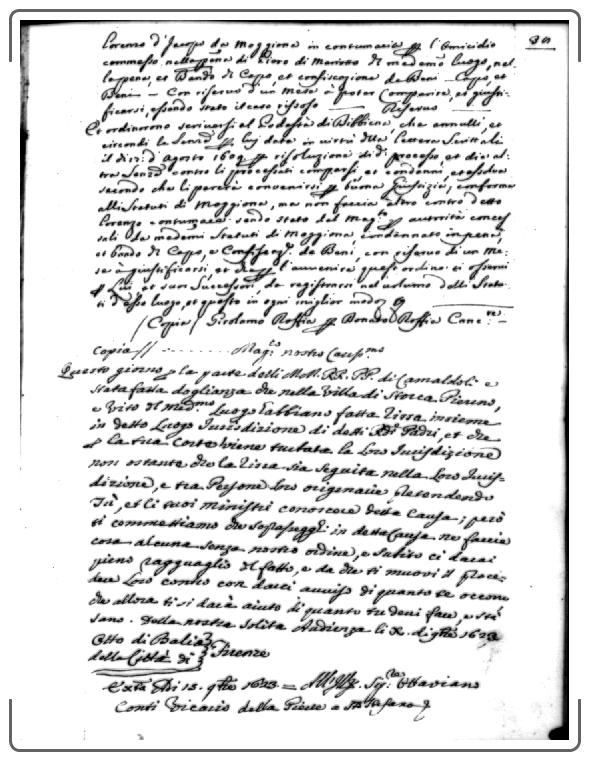 Lorenzo d'Jacopo da Moggiona in contumacia p l'Omicidio
commesso nella psona di Piero di Mariotto di medemo luogo, nel
la pena, et Bando di Capo, et confiscazione de Beni — Capo, et
Beni — Con riservo d'un Mese à poter Comparire, et giusti-
ficarsi, essendo stato il caso rissoso — Riservo —
Et ordinorono scriversi al Podestà di Bibbiena che annulli, et
circondi la Senza p lui data in virtù della lettera Scrittali
il di 12: d'Agosto 1602 p risoluzione di do processo, et dia al-
tra Senza contro li processati comparsi, et condenni, et assolva
secondo che li parerà convenirsi p buona Giustizia, conforme
alli Statuti di Moggiona, ma non faccia altro contro detto
Lorenzo contumace sendo stato dal Mago p autorità conces
sali da medemi Statuti di Moggiona, condennato in pena,
et bando di Capo, e Confisc de Beni, con riservo di un me-
se à giustificarsi, et che p l'avvenire quest'ordine si osservi
p Lui et suoi Successori, da registrarsi nel volume delli Statu-
ti d'esso luogo, et questo in ogni miglior modo
/Copia/ Girolamo Roffia p Donato Roffia Cancre —
Copia // - - - - - - - Mago nostro Carissmo
Questo giorno p la parte delli M.M. RR. PP. di Camaldoli e
stata fatta doglianza che nella Villa di
e Vico Il medmo Luogo fabbiano fatta rissa insieme
in detto Luogo Iurisdizione di detti RRdi Padri, et che
p la tua Corte viene turbata la loro Iurisdizione
non ostante che la rissa sia seguita nella loro Iuris-
dizione, e tra Persone loro originarie, pretendendo
Tù, et li tuoi ministri conoscere detta Causa; però
ti commettiamo che soprasegghi in detta Causa ne faccia
cosa alcuna senza nostro ordine, e subito ci darai
pieno ragguaglio del fatto, e da che ti muovi il proce-
dere Loro contro con darci avviso di quanto te occorre
che allora ti si darà aiuto di quanto tu devi fare, e stà
sano. Della nostra solita Audienza li X. di 9bre 1623
Otto di Balia }
della Città di } Firenze
Exta Adi 13. 9bre 1623 = Sigre Ottaviano
Conti Vicario della Pieve a Sto Stefano